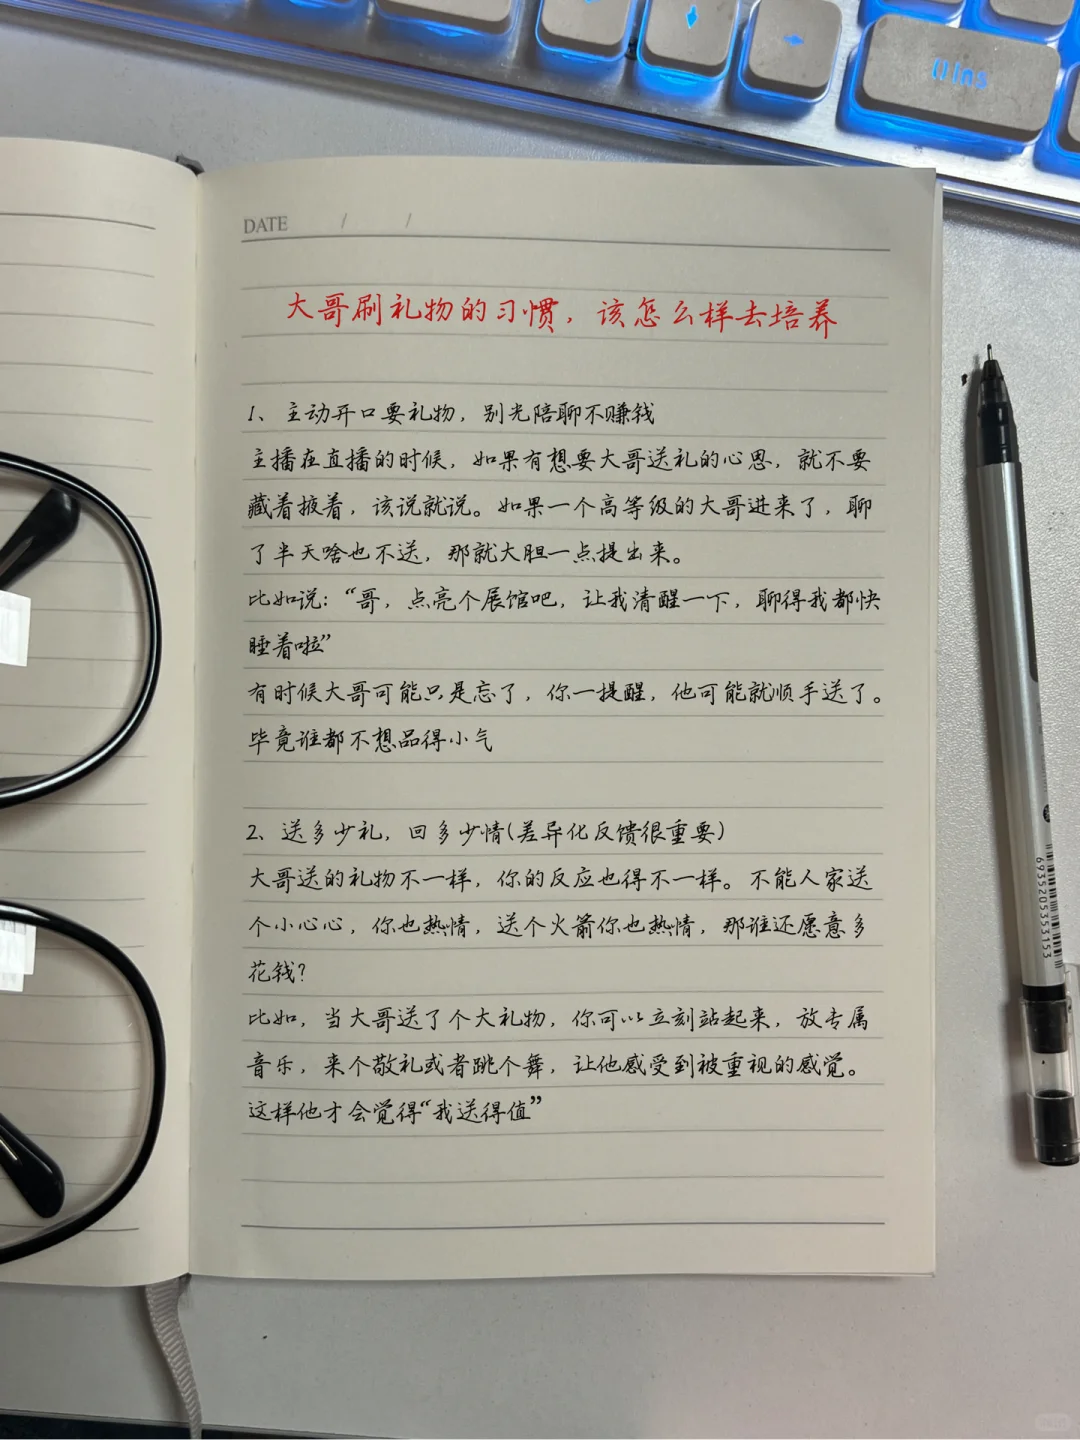 Ins
DATE / /
大哥刷礼物的习惯，该怎么样去培养
1、主动开口要礼物，别光陪聊不赚钱
主播在直播的时候，如果有想要大哥送礼的心思，就不要
藏着掖着，该说就说。如果一个高等级的大哥进来了，聊
了半天啥也不送，那就大胆一点提出来。
比如说：“哥，点亮个展馆吧，让我清醒一下，聊得我都快
睡着啦”
有时候大哥可能只是忘了，你一提醒，他可能就顺手送了。
毕竟谁都不想品得小气
2、送多少礼，回多少情(差异化反馈很重要)
大哥送的礼物不一样，你的反应也得不一样。不能人家送
个小心心，你也热情，送个火箭你也热情，那谁还愿意多
花钱?
比如，当大哥送了个大礼物，你可以立刻站起来，放专属
音乐，来个敬礼或者跳个舞，让他感受到被重视的感觉。
这样他才会觉得“我送得值”
6935205353153